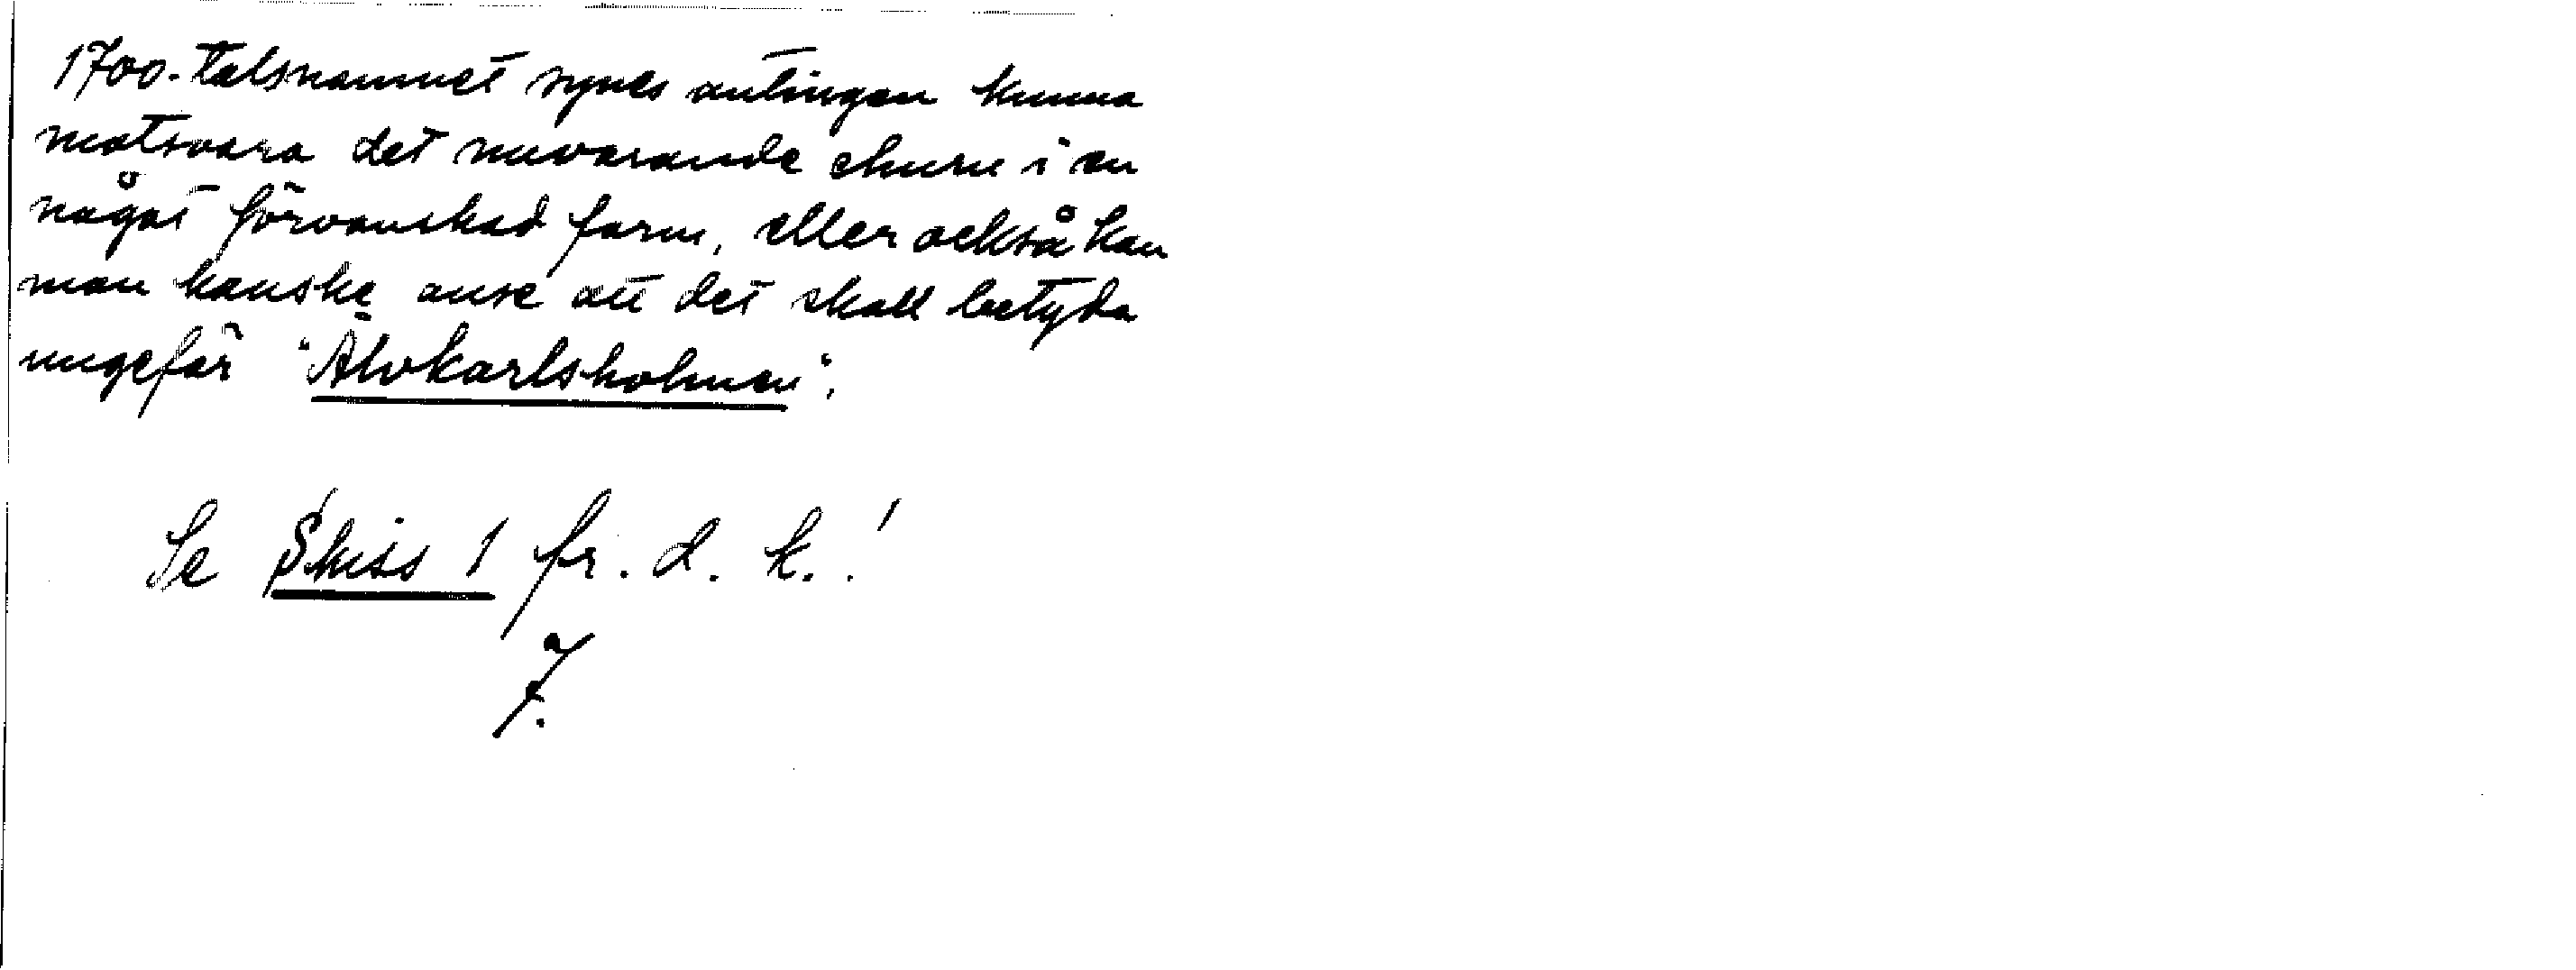 1700-talsnamnet synes antingen kunna
motsvara det nuvarande ehuru i en
något förvanskad form, eller också kan
man kanske anse att det skall betyda
ungefär "Älvkarlsholmen".
Se Skiss 1 fr. d. k.!
7.